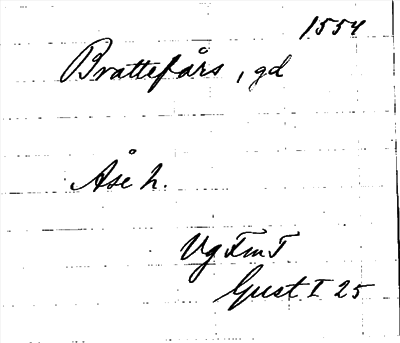 1554
Brattefårs, gd
Åse h.
Vg Fm T
Gust I 25